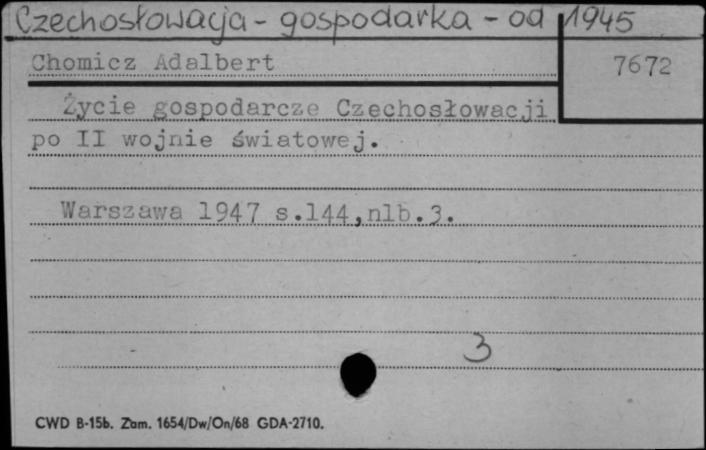 Czechosłowacja - gospodarka - od 1945
Chomicz Adalbert
7672
Życie gospodarcze Czechosłowacji
po II wojnie światowej.
Warszawa 1947 s.144,nlb.3.
3
CWD B-15b. Zam. 1654/Dw/On/68 GDA-2710.